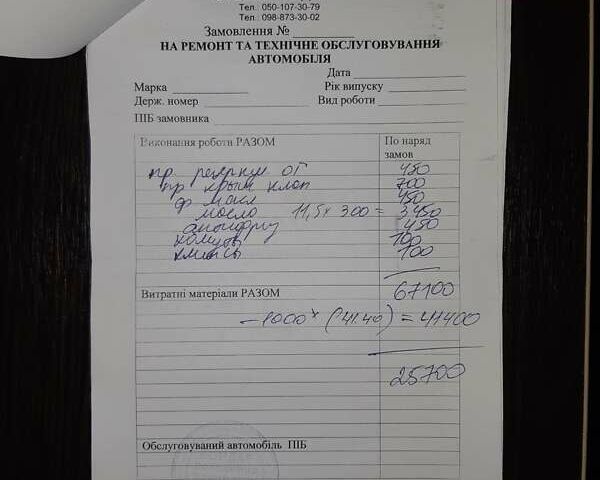 Тел.: 050-107-30-79
Тел.: 098-873-30-02
Замовлення №
НА РЕМОНТ ТА ТЕХНІЧНЕ ОБСЛУГОВУВАННЯ
АВТОМОБІЛЯ
Дата
Марка Рік випуску
Держ. номер Вид роботи
ПІБ замовника
Виконання роботи РАЗОМ По наряд замов
пр 450
пр крыш клап 700
ф масл 450
масло 11,5 x 300 = 3450
450
100
100
Витратні матеріали РАЗОМ 67100
- 1000 x (41.40) = 41400
25700
Обслуговуваний автомобіль ПІБ